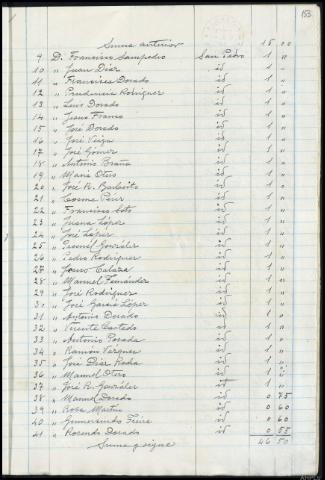 153
Suma anterior 15 00
9 D. Francisco Sampedro San Pedro 1 "
10 " Juan Díaz id 1 "
11 " Francisca Dorado id 1 "
12 " Prudencia Rodríguez id 1 "
13 " Luis Dorado id 1 "
14 " Jesus Franco id 1 "
15 " José Dorado id 1 "
16 " José Veiga id 1 "
17 " José Gómez id 1 "
18 " Antonio Braña id 1 "
19 " María Otero id 1 "
20 " José R. id 1 "
21 " Cosme Pérez id 1 "
22 " Francisco Soto id 1 "
23 " Juana López id 1 "
24 " José López id 1 "
25 " González id 1 "
26 " Pedro Rodríguez id 1 "
27 " id 1 "
28 " Manuel Fernández id 1 "
29 " José Rodríguez id 1 "
30 " José García López id 1 "
31 " Antonio Dorado id 1 "
32 " Vicente Castedo id 1 "
33 " Antonio Posada id 1 "
34 " Ramón Vázquez id 1 "
35 " José Díaz id 1 "
36 " Manuel Otero id 1 "
37 " José R. González id 1 "
38 " Manuel Dorado id 0 75
39 " Rosa Martínez id 0 60
40 " Gumersindo Freire id 0 60
41 " Rosendo Dorado id 0 55
Suma y sigue 46 50